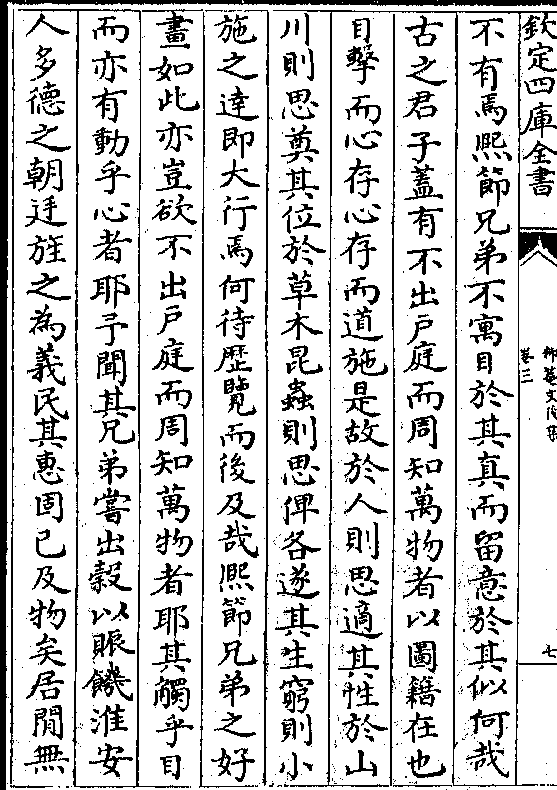 欽定四庫全書
卷三
七
不有焉熙節兄弟不寓目於其真而留意於其似何哉
古之君子蓋有不出戶庭而周知萬物者以圖籍在也
目擊而心存心存而道施是故於人則思適其性於山
川則思奠其位於草木昆蟲則思俾各遂其生窮則小
施之達即大行焉何待歷覽而後及哉熙節兄弟之好
畫如此亦豈欲不出戶庭而周知萬物者耶其觸乎目
而亦有動乎心者耶予聞其兄弟嘗出穀以賑饑淮安
人多德之朝廷旌之為義民其惠固已及物矣居閒無